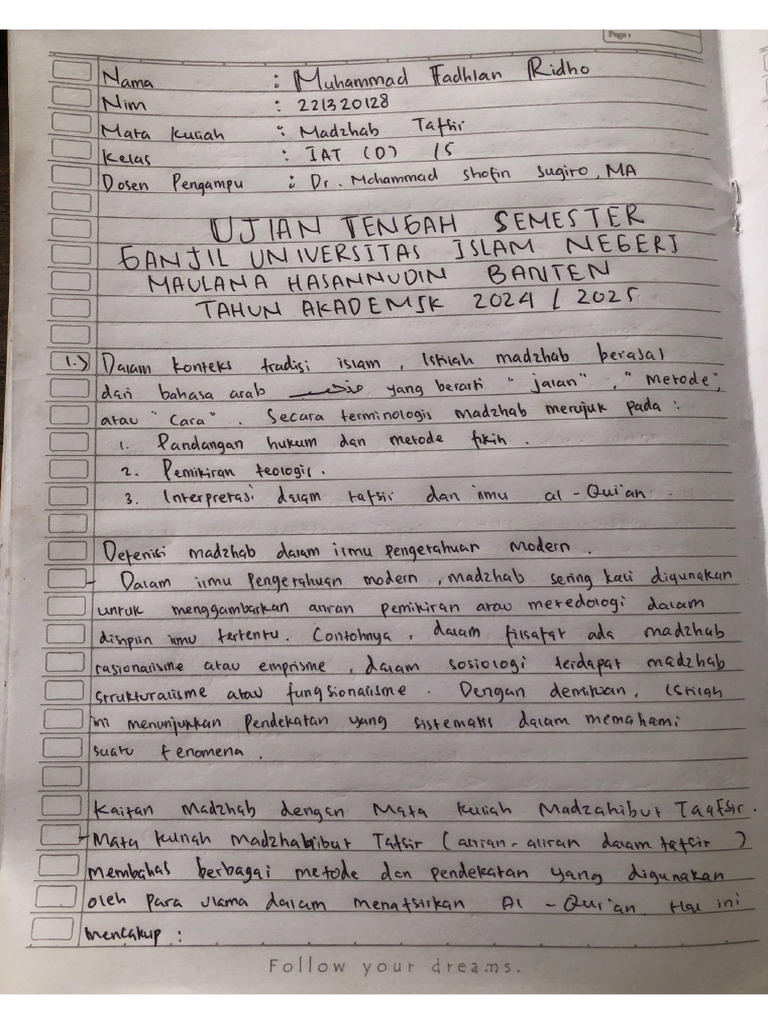 Page :
Nama : Muhammad Fadhlan Ridho
Nim : 221320128
Mata kuliah : Madzhab Tafsir
Kelas : IAT (D) /5
Dosen Pengampu : Dr. Mohammad Shofin Sugiro, MA
UJIAN TENGAH SEMESTER
GANJIL UNIVERSITAS ISLAM NEGERI
MAULANA HASANNUDIN BANTEN
TAHUN AKADEMIK 2024 / 2025
1.) Dalam konteks tradisi islam, Istilah madzhab berasal
dari bahasa arab مذهب yang berarti "jalan", "metode",
atau "Cara". Secara terminologis madzhab merujuk pada :
1. Pandangan hukum dan metode fikih.
2. Pemikiran teologis.
3. Interpretasi dalam tafsir dan ilmu al-Qur'an.
Defenisi madzhab dalam ilmu pengetahuan modern.
- Dalam ilmu pengetahuan modern, madzhab sering kali digunakan
untuk menggambarkan aliran pemikiran atau metedologi dalam
disiplin ilmu tertentu. Contohnya, dalam filsafat ada madzhab
rasionalisme atau emprisme, dalam sosiologi terdapat madzhab
strukturalisme atau fungsionalisme. Dengan demikian, Istilah
ini menunjukkan Pendekatan yang sistematis dalam memahami
suatu fenomena.
Kaitan Madzhab dengan Mata kuliah Madzahibut Taafsir.
- Mata kuliah Madzhabibut Tafsir (aliran-aliran dalam tafsir)
membahas berbagai metode dan pendekatan yang digunakan
oleh Para ulama dalam menafsirkan Al-Qur'an. Hal ini
mencakup :
Follow your dreams.